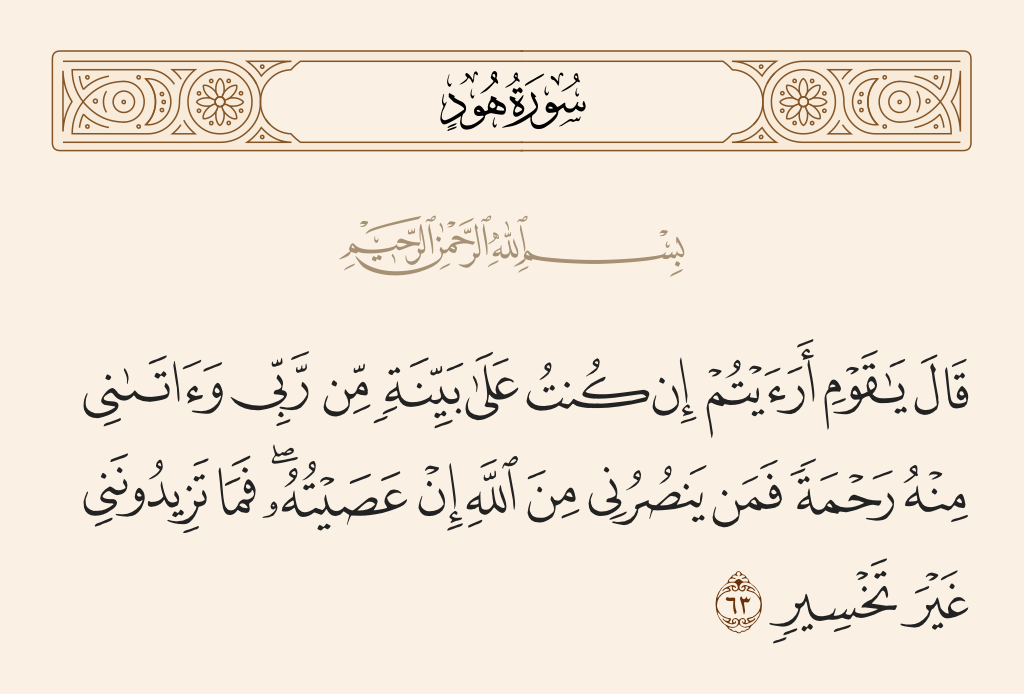 سُورَةُ هُودٍ
بِسْمِ ٱللَّهِ ٱلرَّحْمَٰنِ ٱلرَّحِيمِ
قَالَ يَـٰقَوْمِ أَرَءَيْتُمْ إِن كُنتُ عَلَىٰ بَيِّنَةٍ مِّن رَّبِّى وَءَاتَـىٰنِى
مِنْهُ رَحْمَةً فَمَن يَنصُرُنِى مِنَ ٱللَّهِ إِنْ عَصَيْتُهُۥ ۖ فَمَا تَزِيدُونَنِى
غَيْرَ تَخْسِيرٍ ٦٣